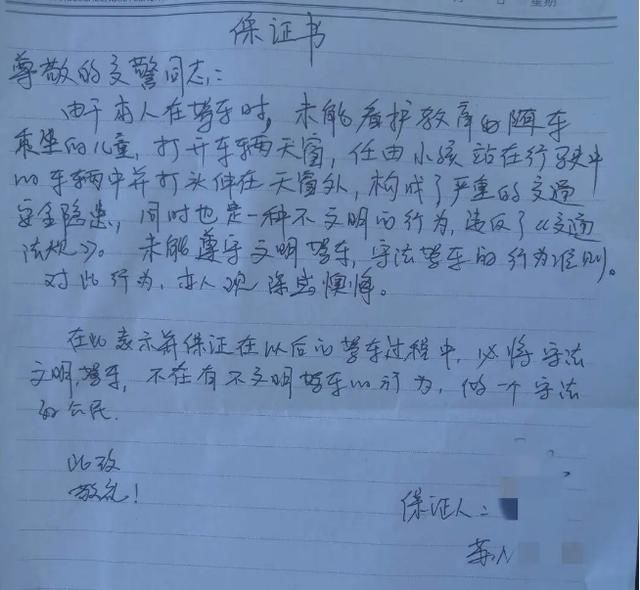 星期
保证书
尊敬的交警同志：
由于本人在驾车时，未能看护教育的随车
乘坐的儿童，打开车辆天窗，任由小孩站在行驶中
的车辆中并打头伸在天窗外，构成了严重的交通
安全隐患，同时也是一种不文明的行为，违反了《交通
法规》。未能遵守文明驾车，守法驾车的行为准则。
对此行为，本人现深感懊悔。
在此表示并保证在以后的驾车过程中，必将守法
文明驾车，不在有不文明驾车的行为，做一个守法
的公民.
此致
敬礼！
保证人：